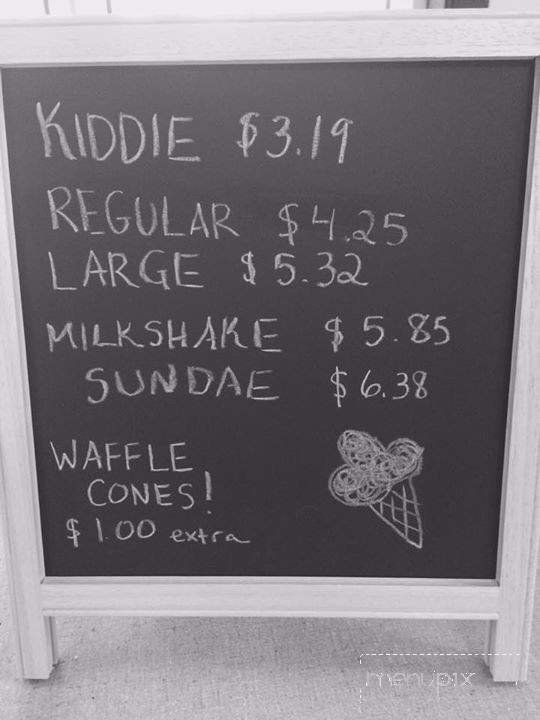 KIDDIE $3.19
REGULAR $4.25
LARGE $5.32
MILKSHAKE $5.85
SUNDAE $6.38
WAFFLE
CONES!
$1.00 extra
menupix